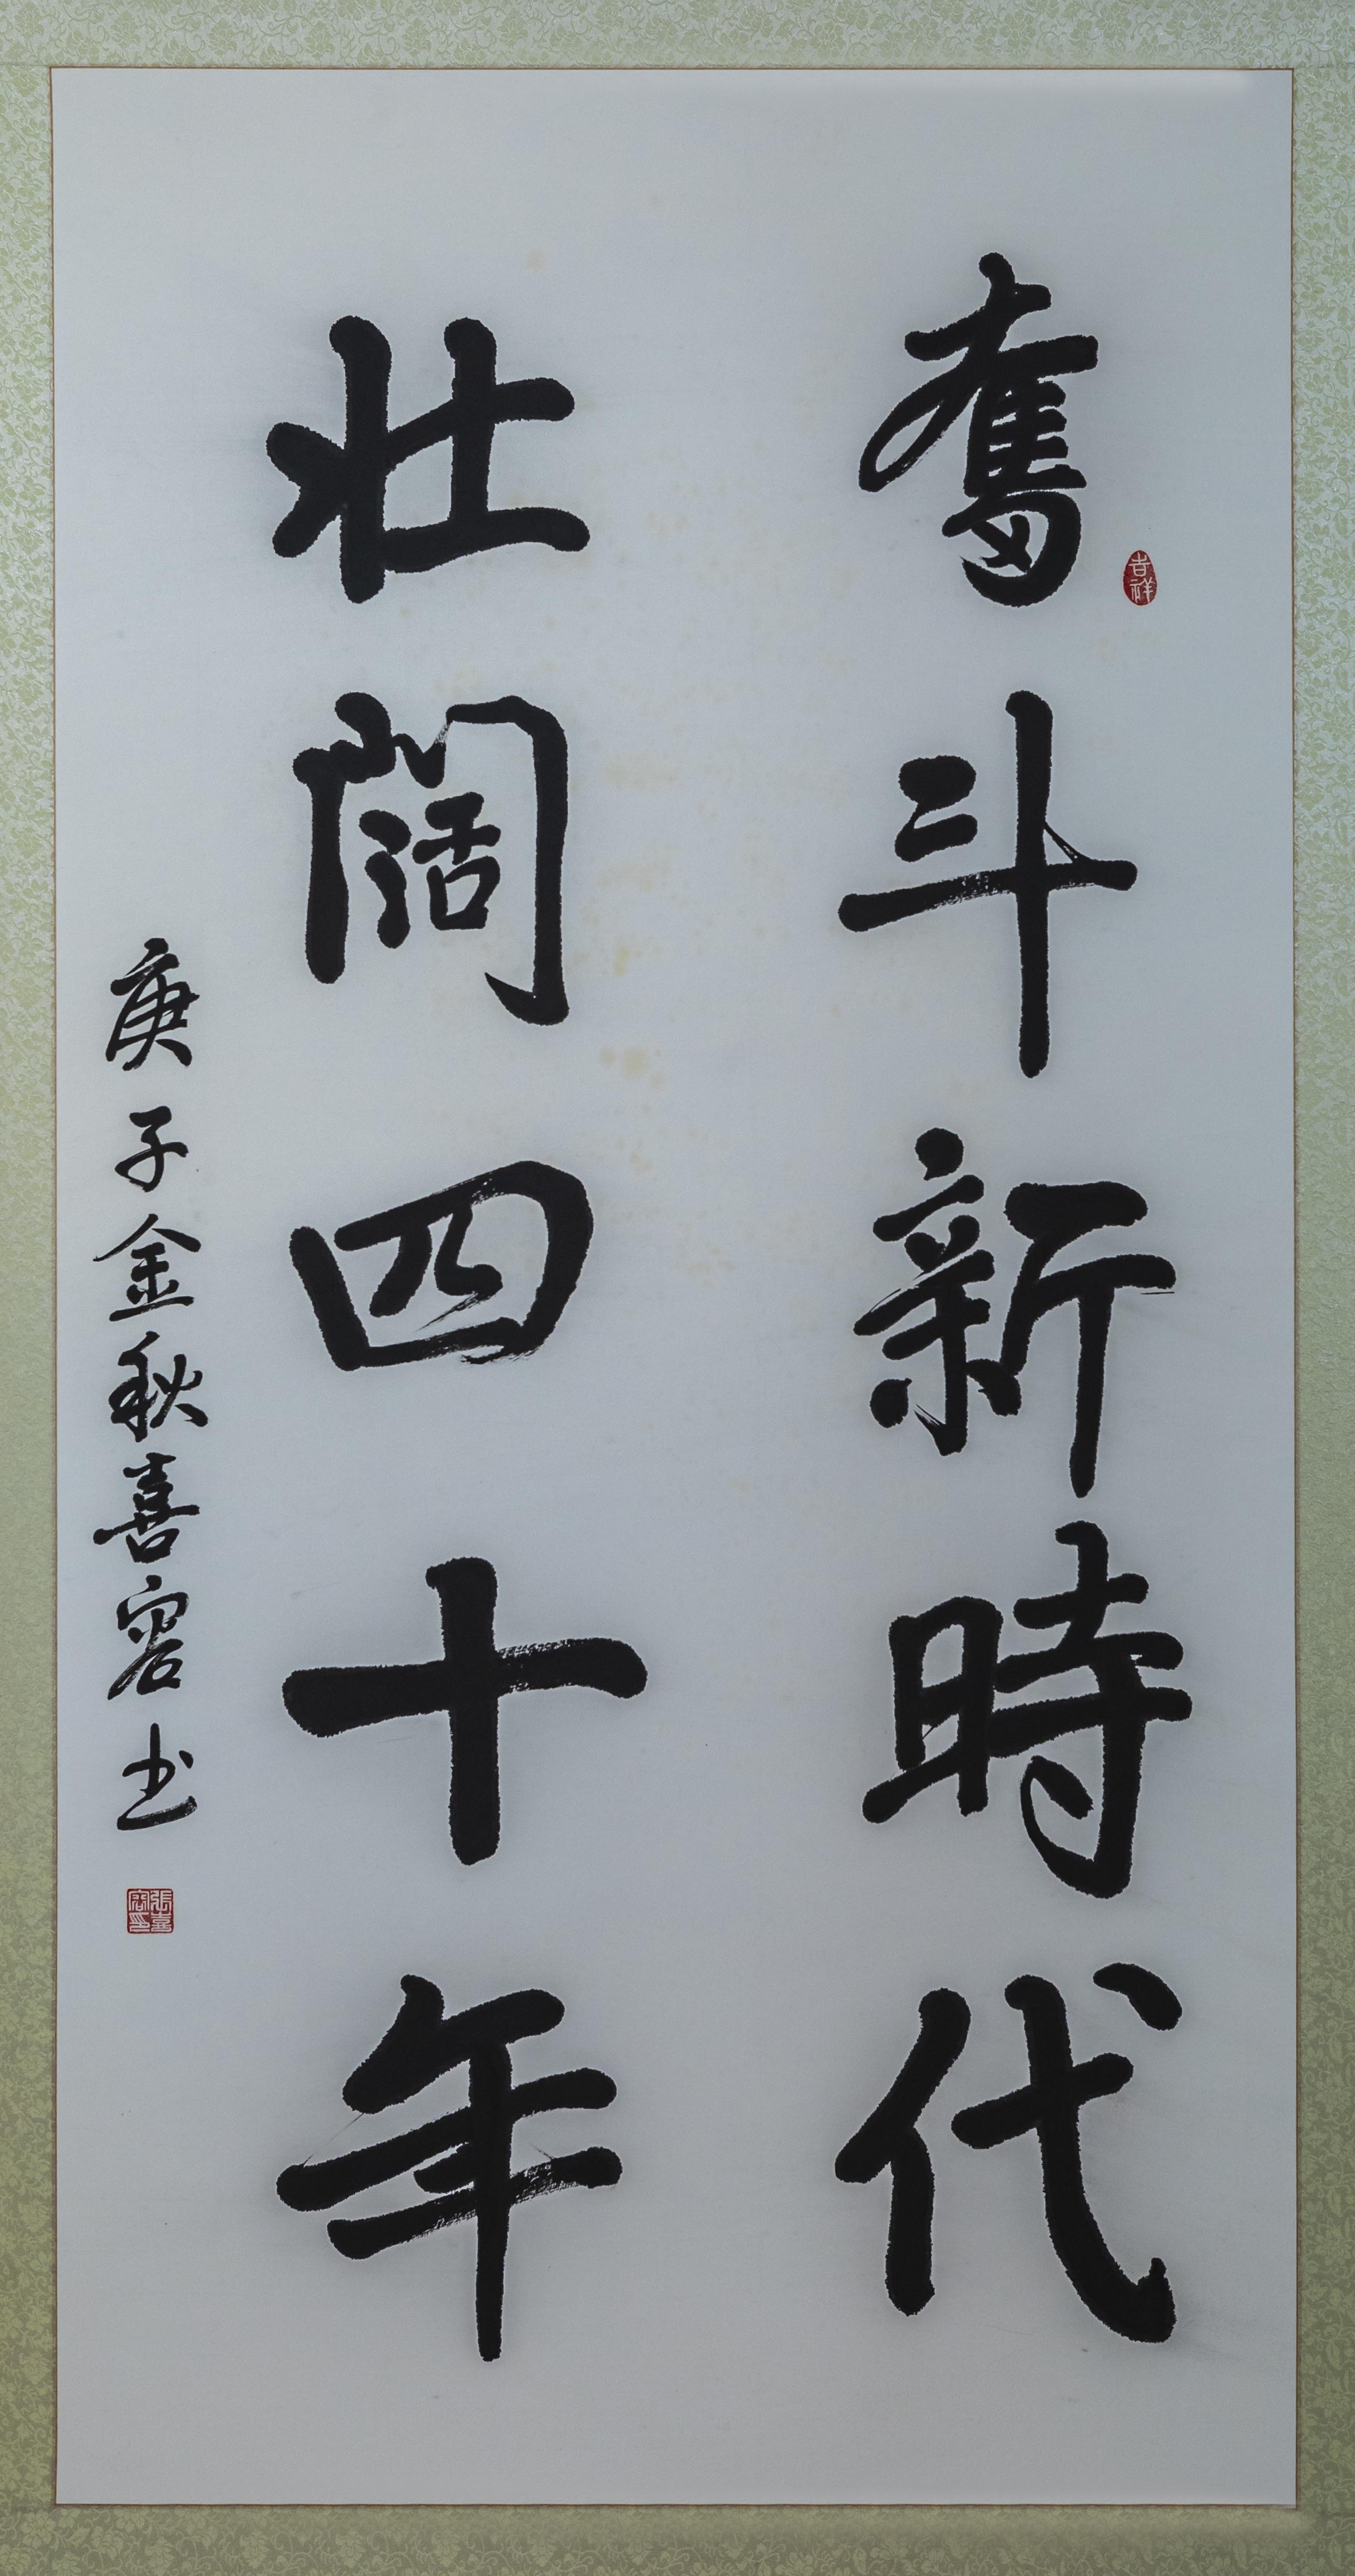 奮斗新時代
吉祥
壮阔四十年
庚子金秋喜容书
張喜容印